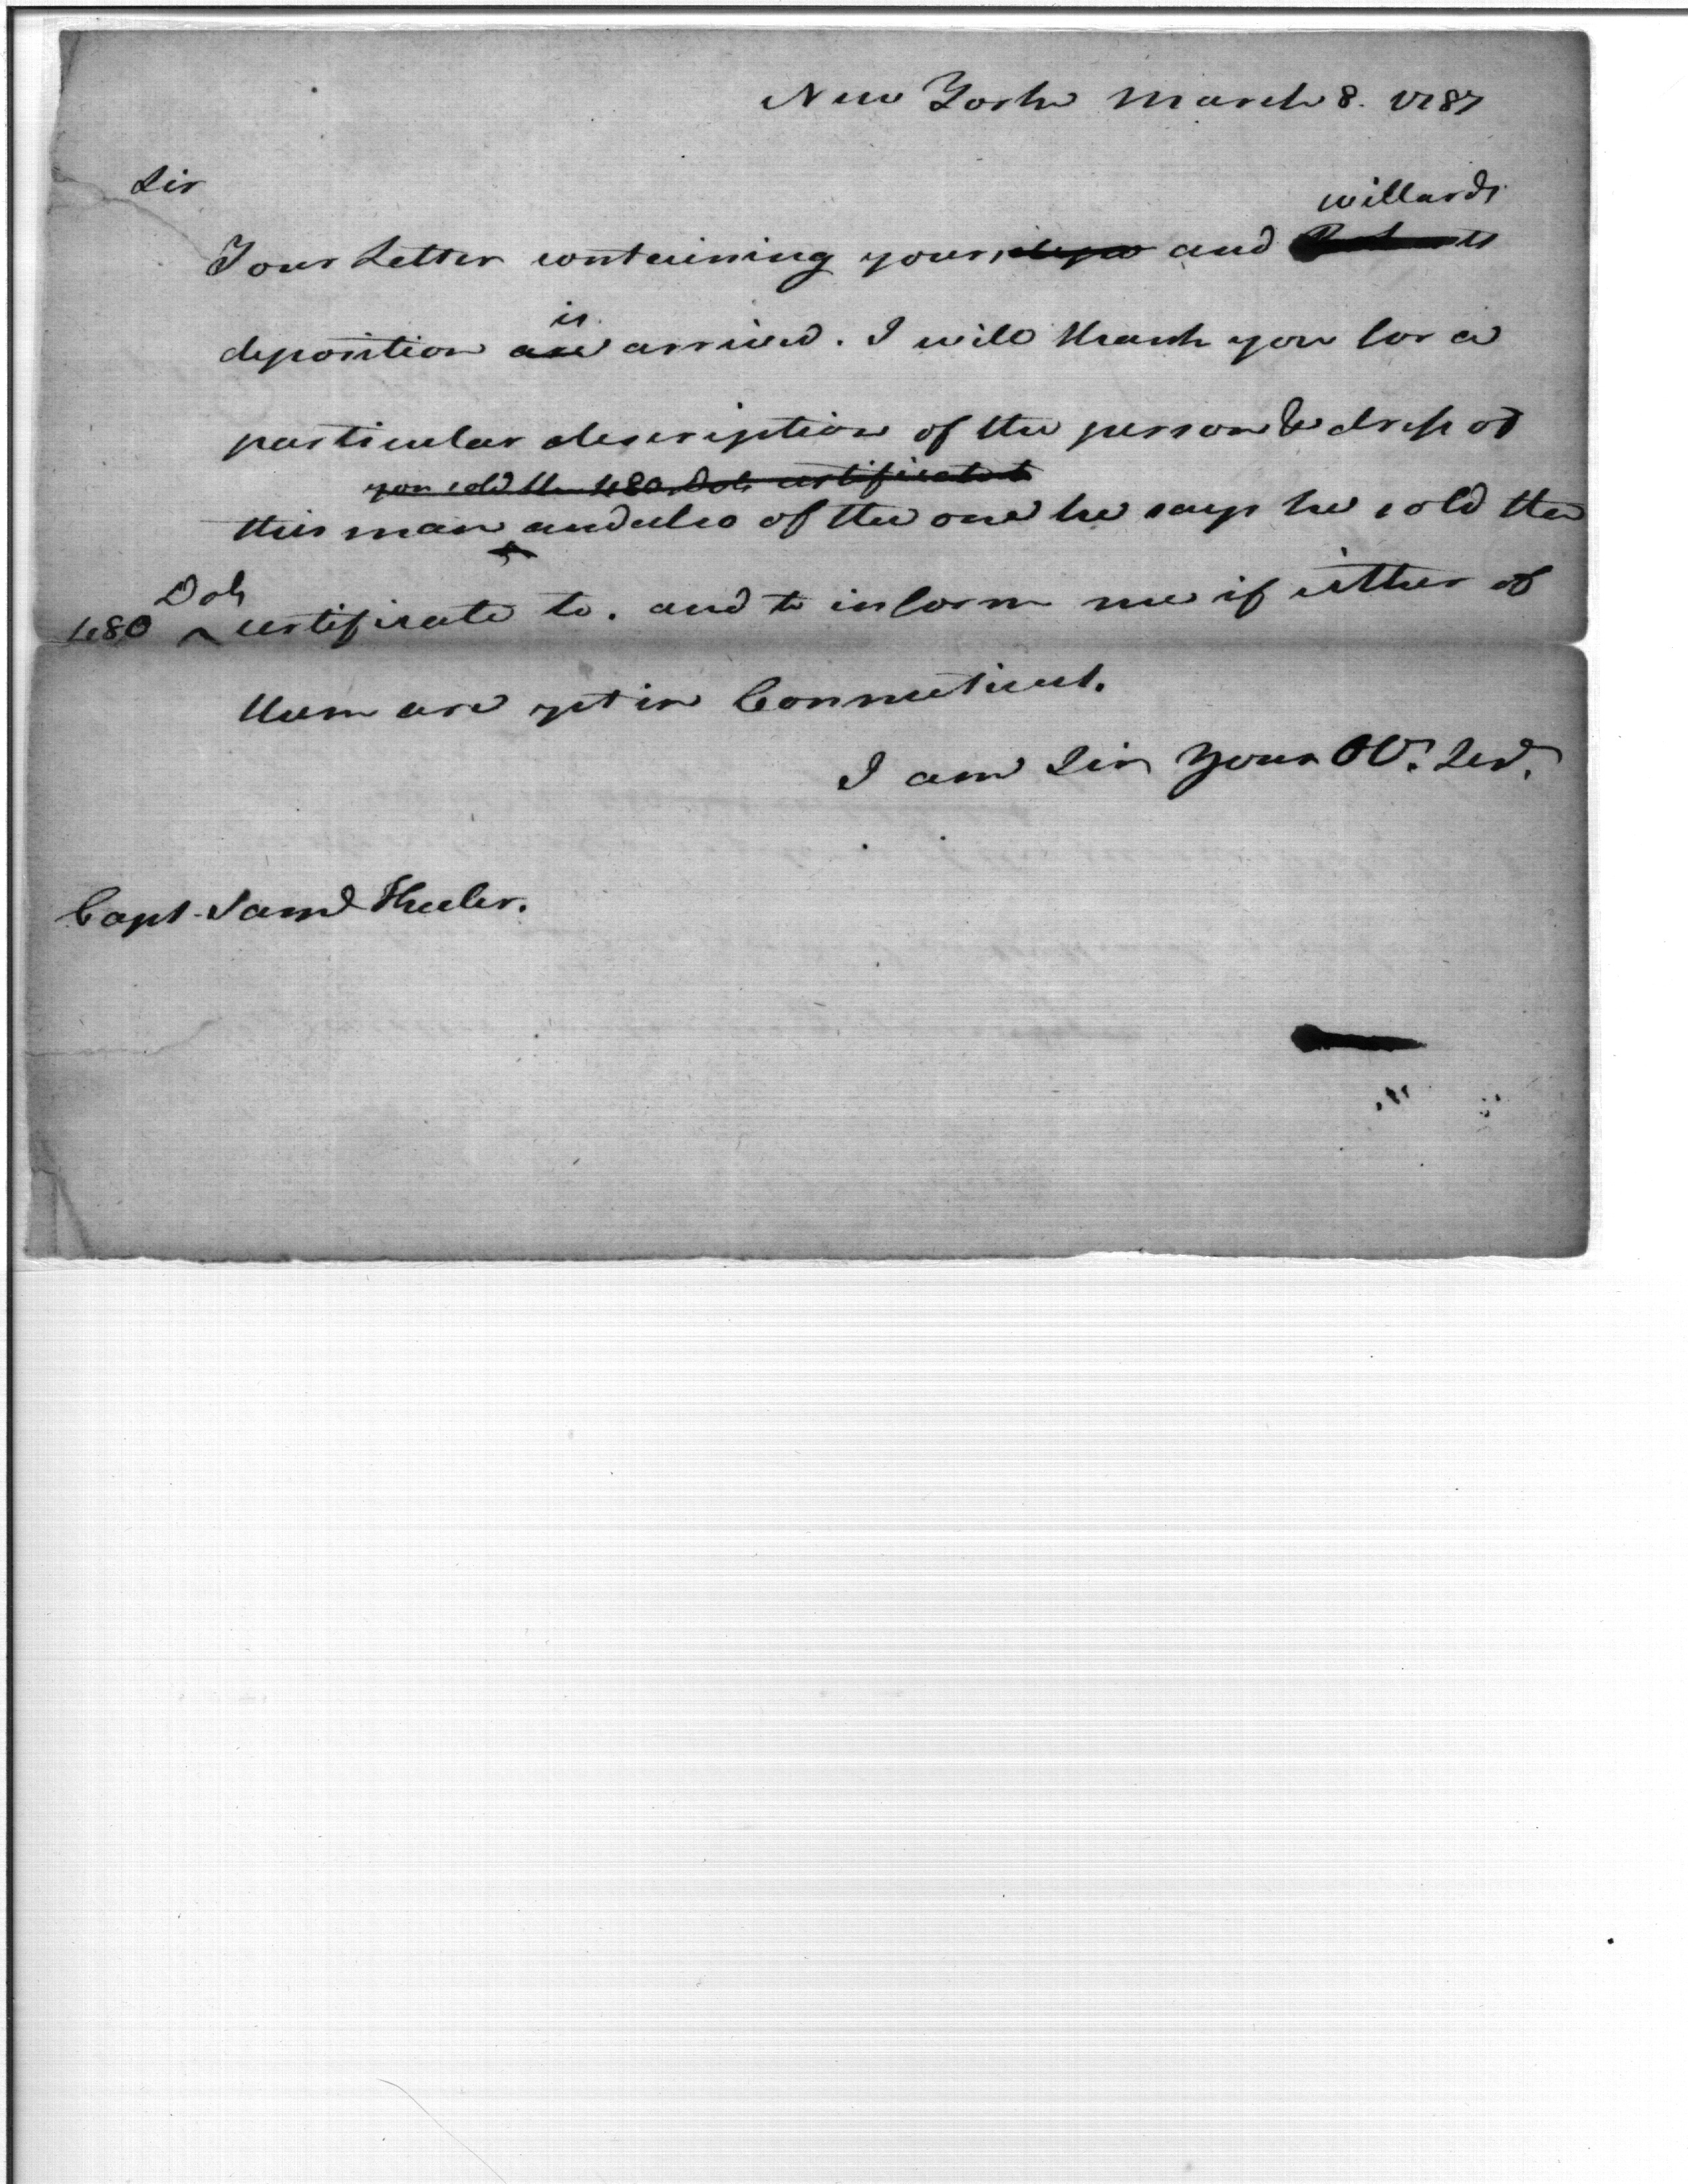 New York March 8. 1787
Sir
willards
Your Letter containing yours, depo and
is
deposition are arrived. I will thank you for a
particular description of the person & dress of
you sold the 480 Dols certificate to
this man and also of the one he says he sold the
Dols
480 ^ certificate to. and to inform me if either of
them are yet in Connecticut.
I am Sir your Ob. Serv.
Capt. Saml